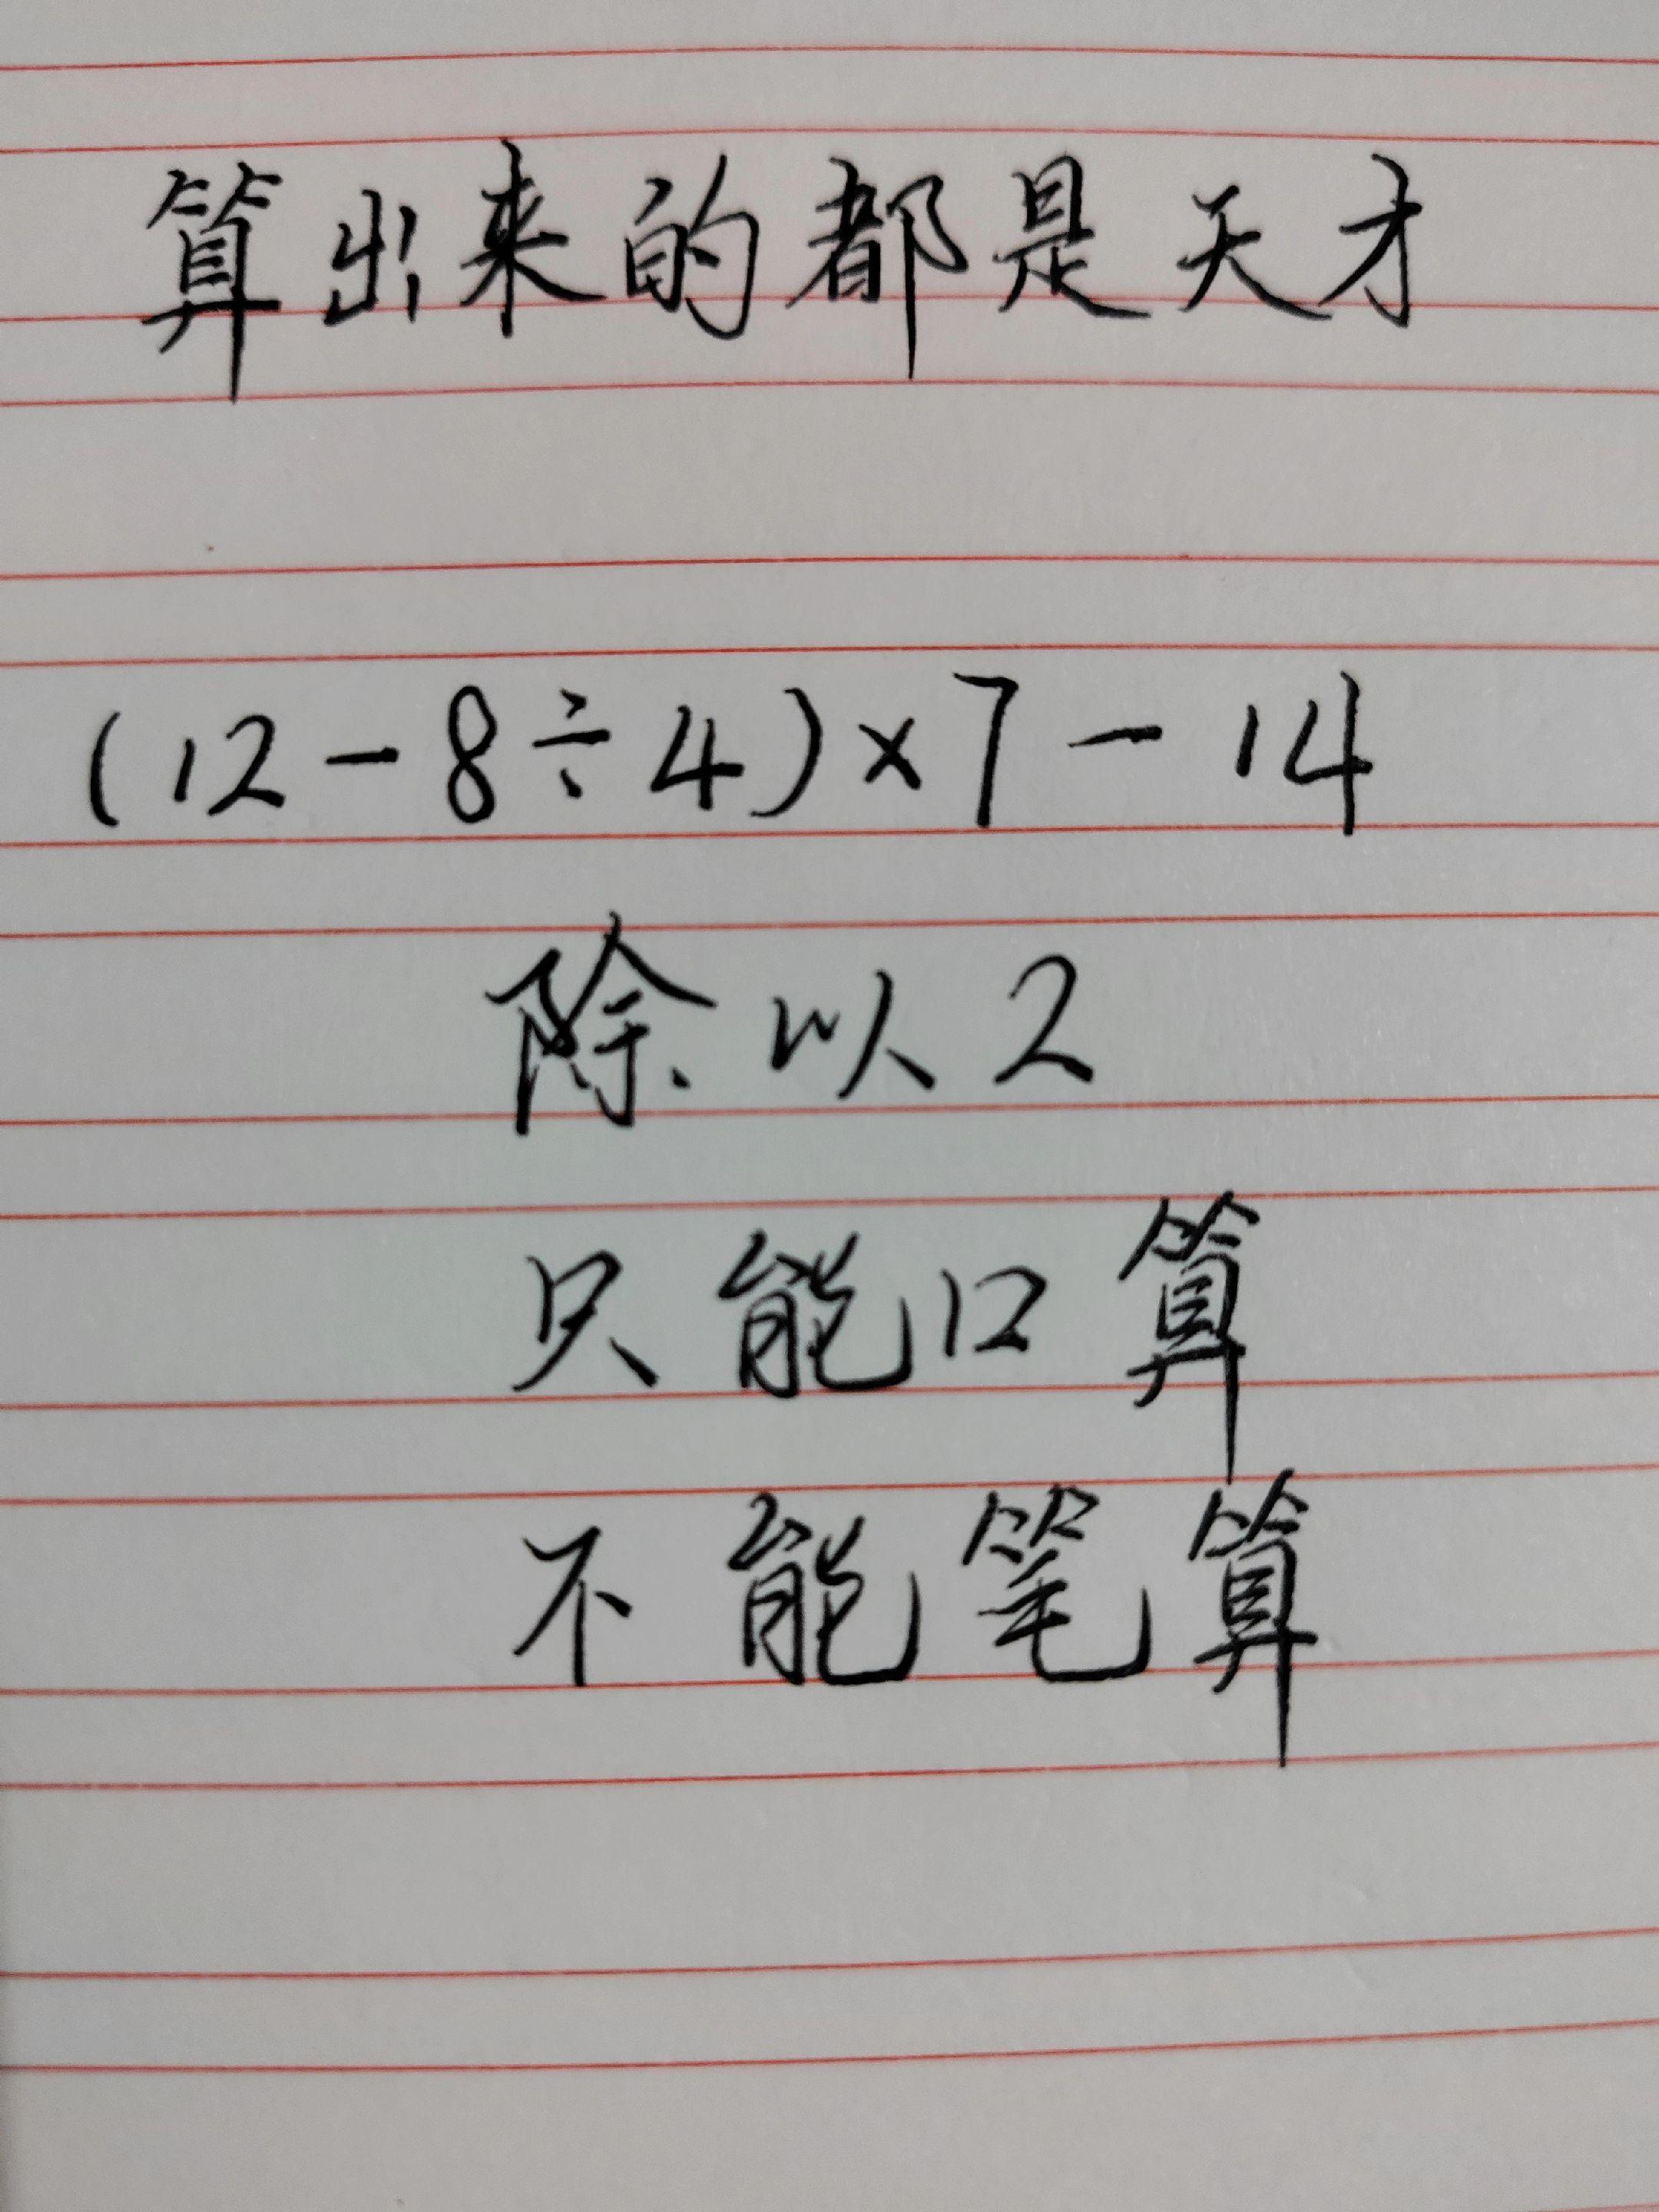 算出来的都是天才
(12-8÷4)×7-14
除以2
只能口算
不能笔算